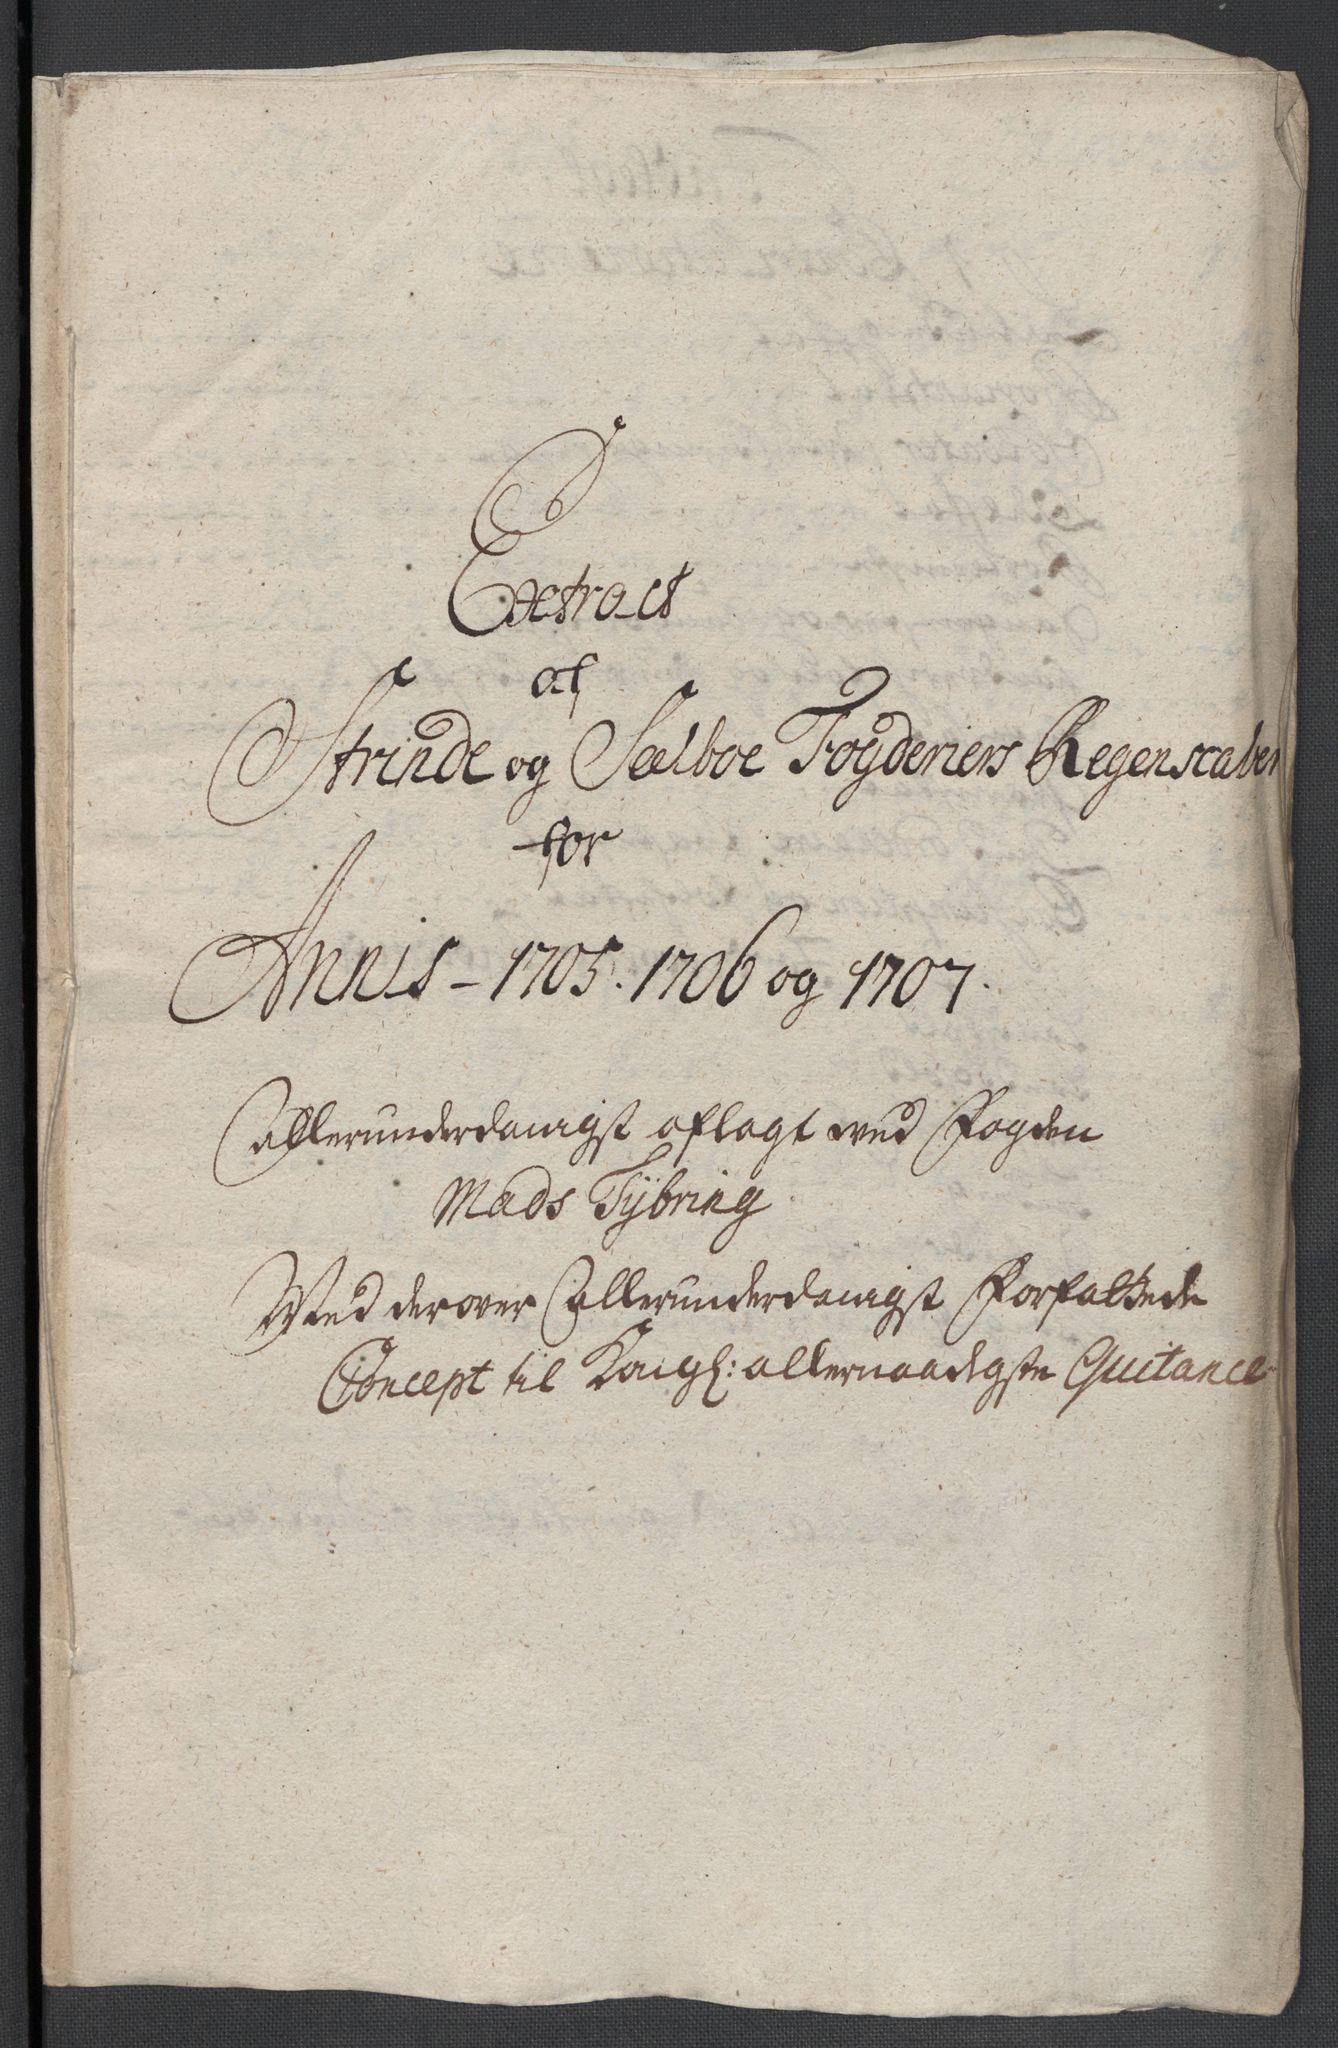 Extract
af
Strinde og Sælboe Foyderiers Regenscaber
for
Annis - 1705. 1706 og 1707.
Allerunderdanigst aflagt ved Fogden
Mads Tÿbring
Med derover Allerunderdanigst Forfattede
Concept til Kongl: allernaadigste Quitance